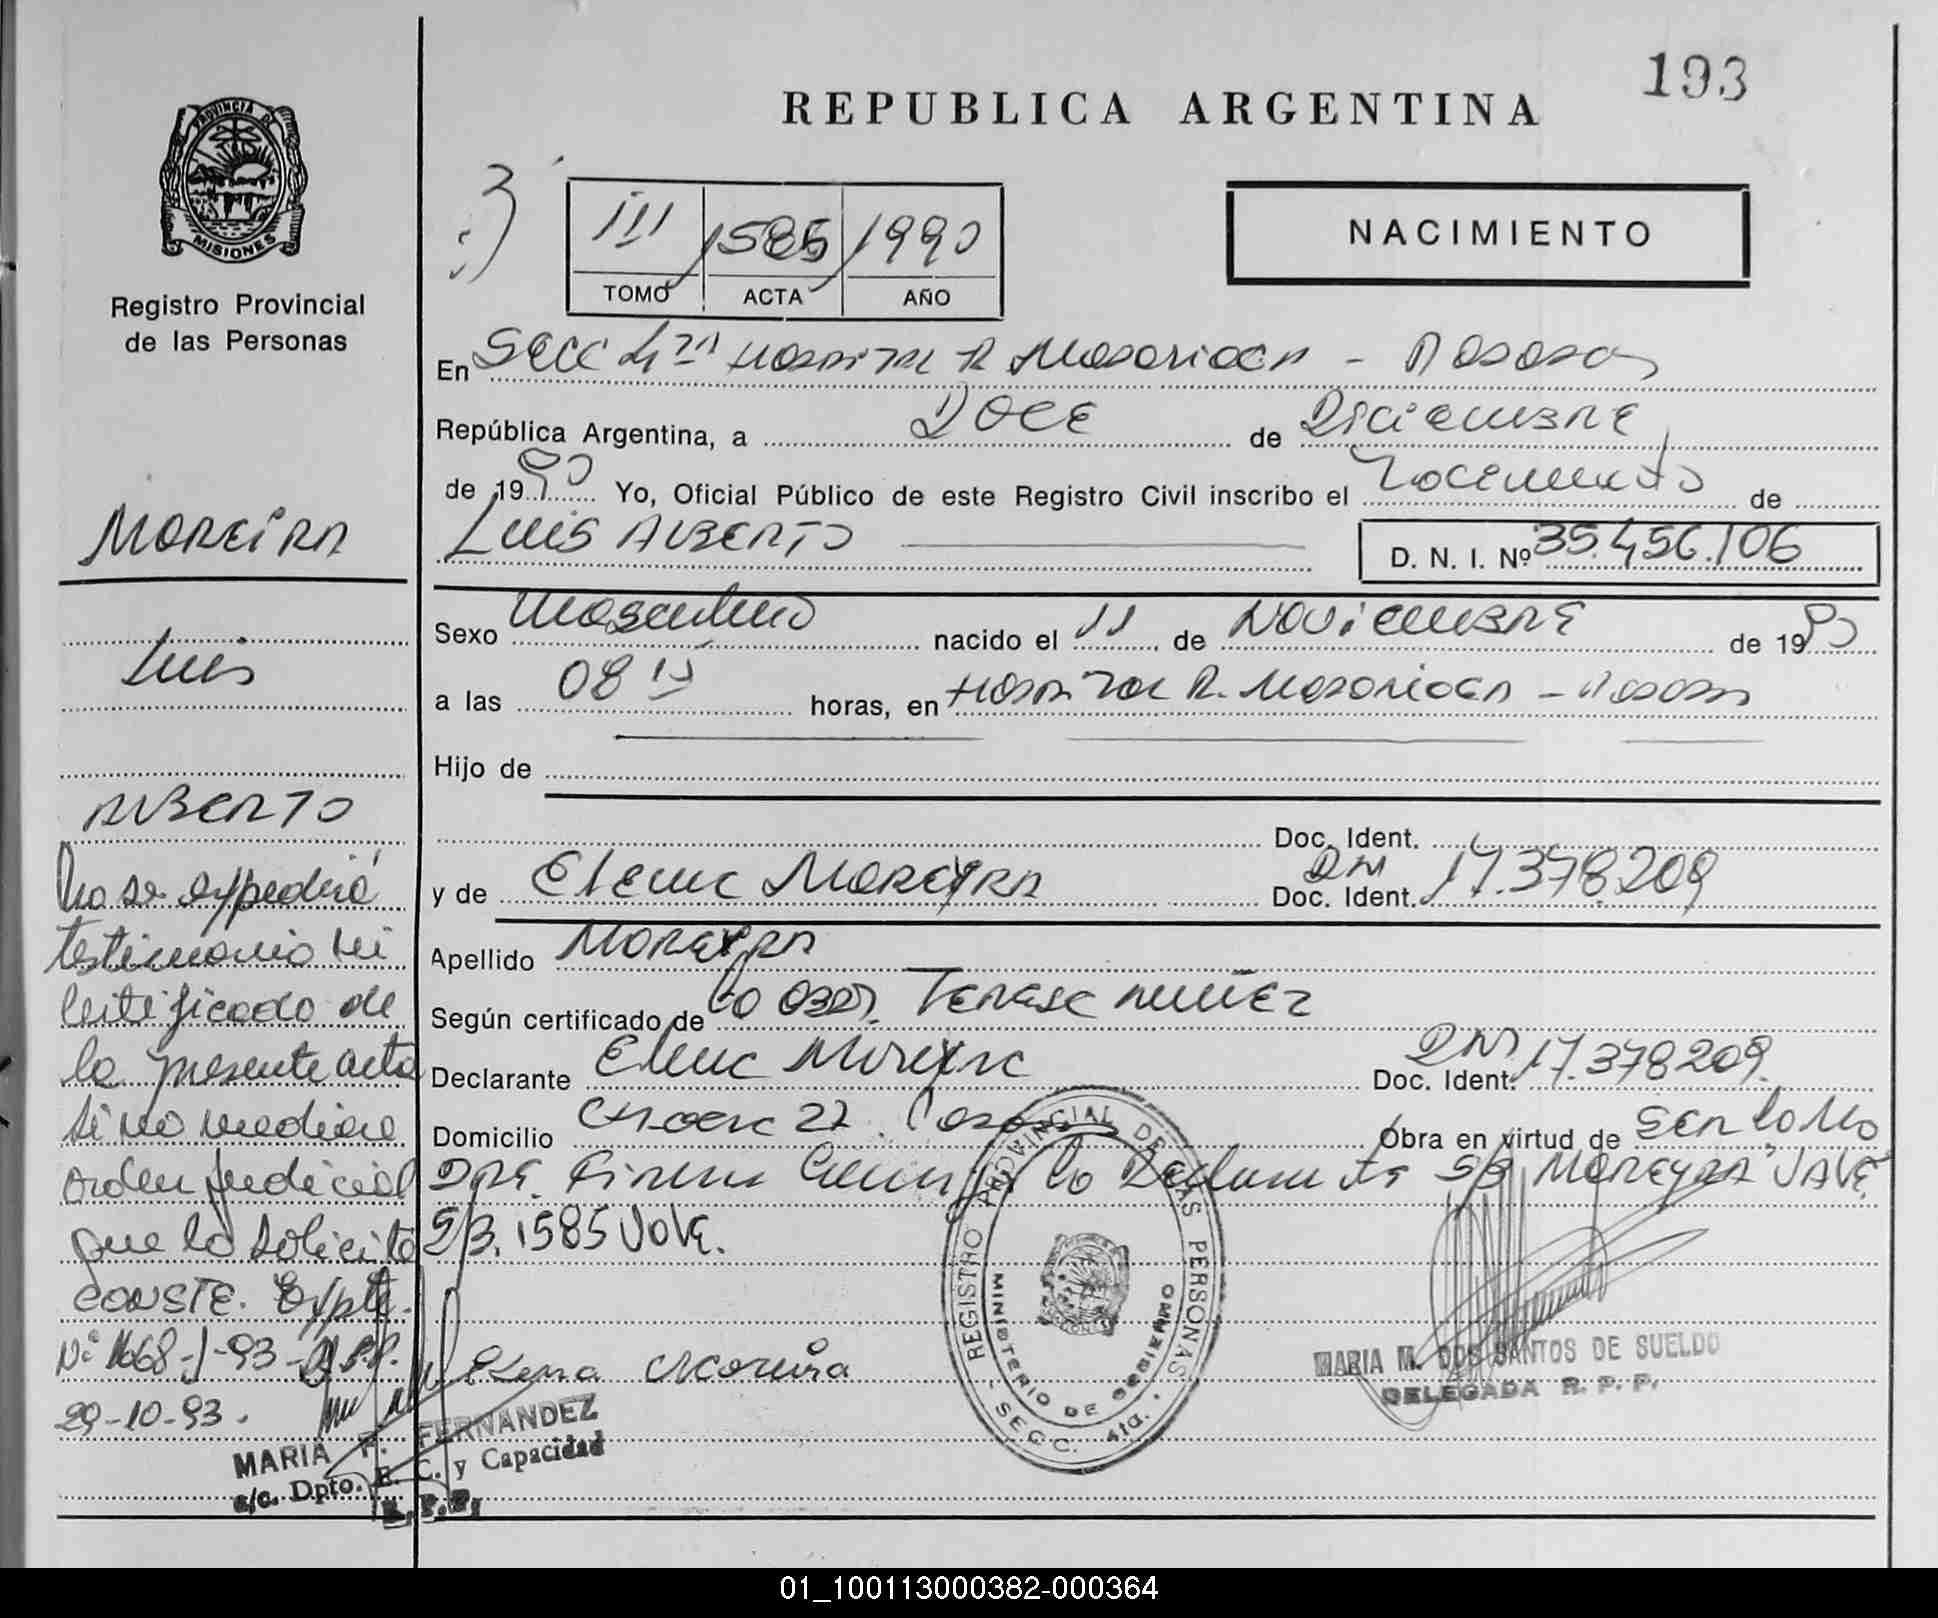 193
REPUBLICA ARGENTINA
PROVINCIA DE
MISIONES
Registro Provincial
de las Personas
III 1585 1990
TOMO ACTA AÑO
NACIMIENTO
En Secc 4ta Hospital R Madariaga - Posadas
República Argentina, a DOCE de Diciembre
de 1990 Yo, Oficial Público de este Registro Civil inscribo el Nacimiento de
LUIS ALBERTO D. N. I. Nº 35.456.106
Sexo Masculino nacido el 11 de NOVIEMBRE de 1990
a las 08 15 horas, en Hospital R. Madariaga - Posadas
Hijo de
Doc. Ident.
y de Elena MOREYRA DNI Doc. Ident. 17.378.209
Apellido MOREYRA
Según certificado de la Obst. Teresa Nuñez
Declarante Elena Moreyra DNI Doc. Ident. 17.378.209.
Domicilio Chacra 22. Posadas Obra en virtud de ser la Ma
dre. Firma la Declarante S/B MOREYRA VALE
S/B. 1585 Vale.
Elena Moreira
MOREIRA
Luis
ALBERTO
No se expedirá
testimonio ni
certificado de
la presente acta
si no mediare
orden judicial
que lo solicite
CONSTE. Expte.
Nº 1668-J-93-R.P.P.
29-10-93.
MARIA F. FERNANDEZ
a/c. Dpto. E. C. y Capacidad
R. P. P.
REGISTRO PROVINCIAL DE LAS PERSONAS
MINISTERIO DE GOBIERNO
- SECC. 4ta. -
MARIA M. DOS SANTOS DE SUELDO
DELEGADA R. P. P.
01_100113000382-000364